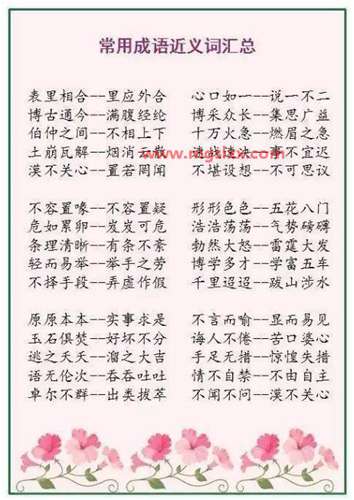 常用成语近义词汇总
表里相合--里应外合 心口如一--说一不二
博古通今--满腹经纶 博采众长--集思广益
伯仲之间--不相上下 十万火急--燃眉之急
土崩瓦解--烟消云散 速战速决--事不宜迟
漠不关心--置若罔闻 不堪设想--不可思议
不容置喙--不容置疑 形形色色--五花八门
危如累卵--岌岌可危 浩浩荡荡--气势磅礴
条理清晰--有条不紊 勃然大怒--雷霆大发
轻而易举--举手之劳 博学多才--学富五车
不择手段--弄虚作假 千里迢迢--跋山涉水
原原本本--实事求是 不言而喻--显而易见
玉石俱焚--好坏不分 诲人不倦--苦口婆心
逃之夭夭--溜之大吉 手足无措--惊惶失措
语无伦次--吞吞吐吐 情不自禁--不由自主
卓尔不群--出类拔萃 不闻不问--漠不关心